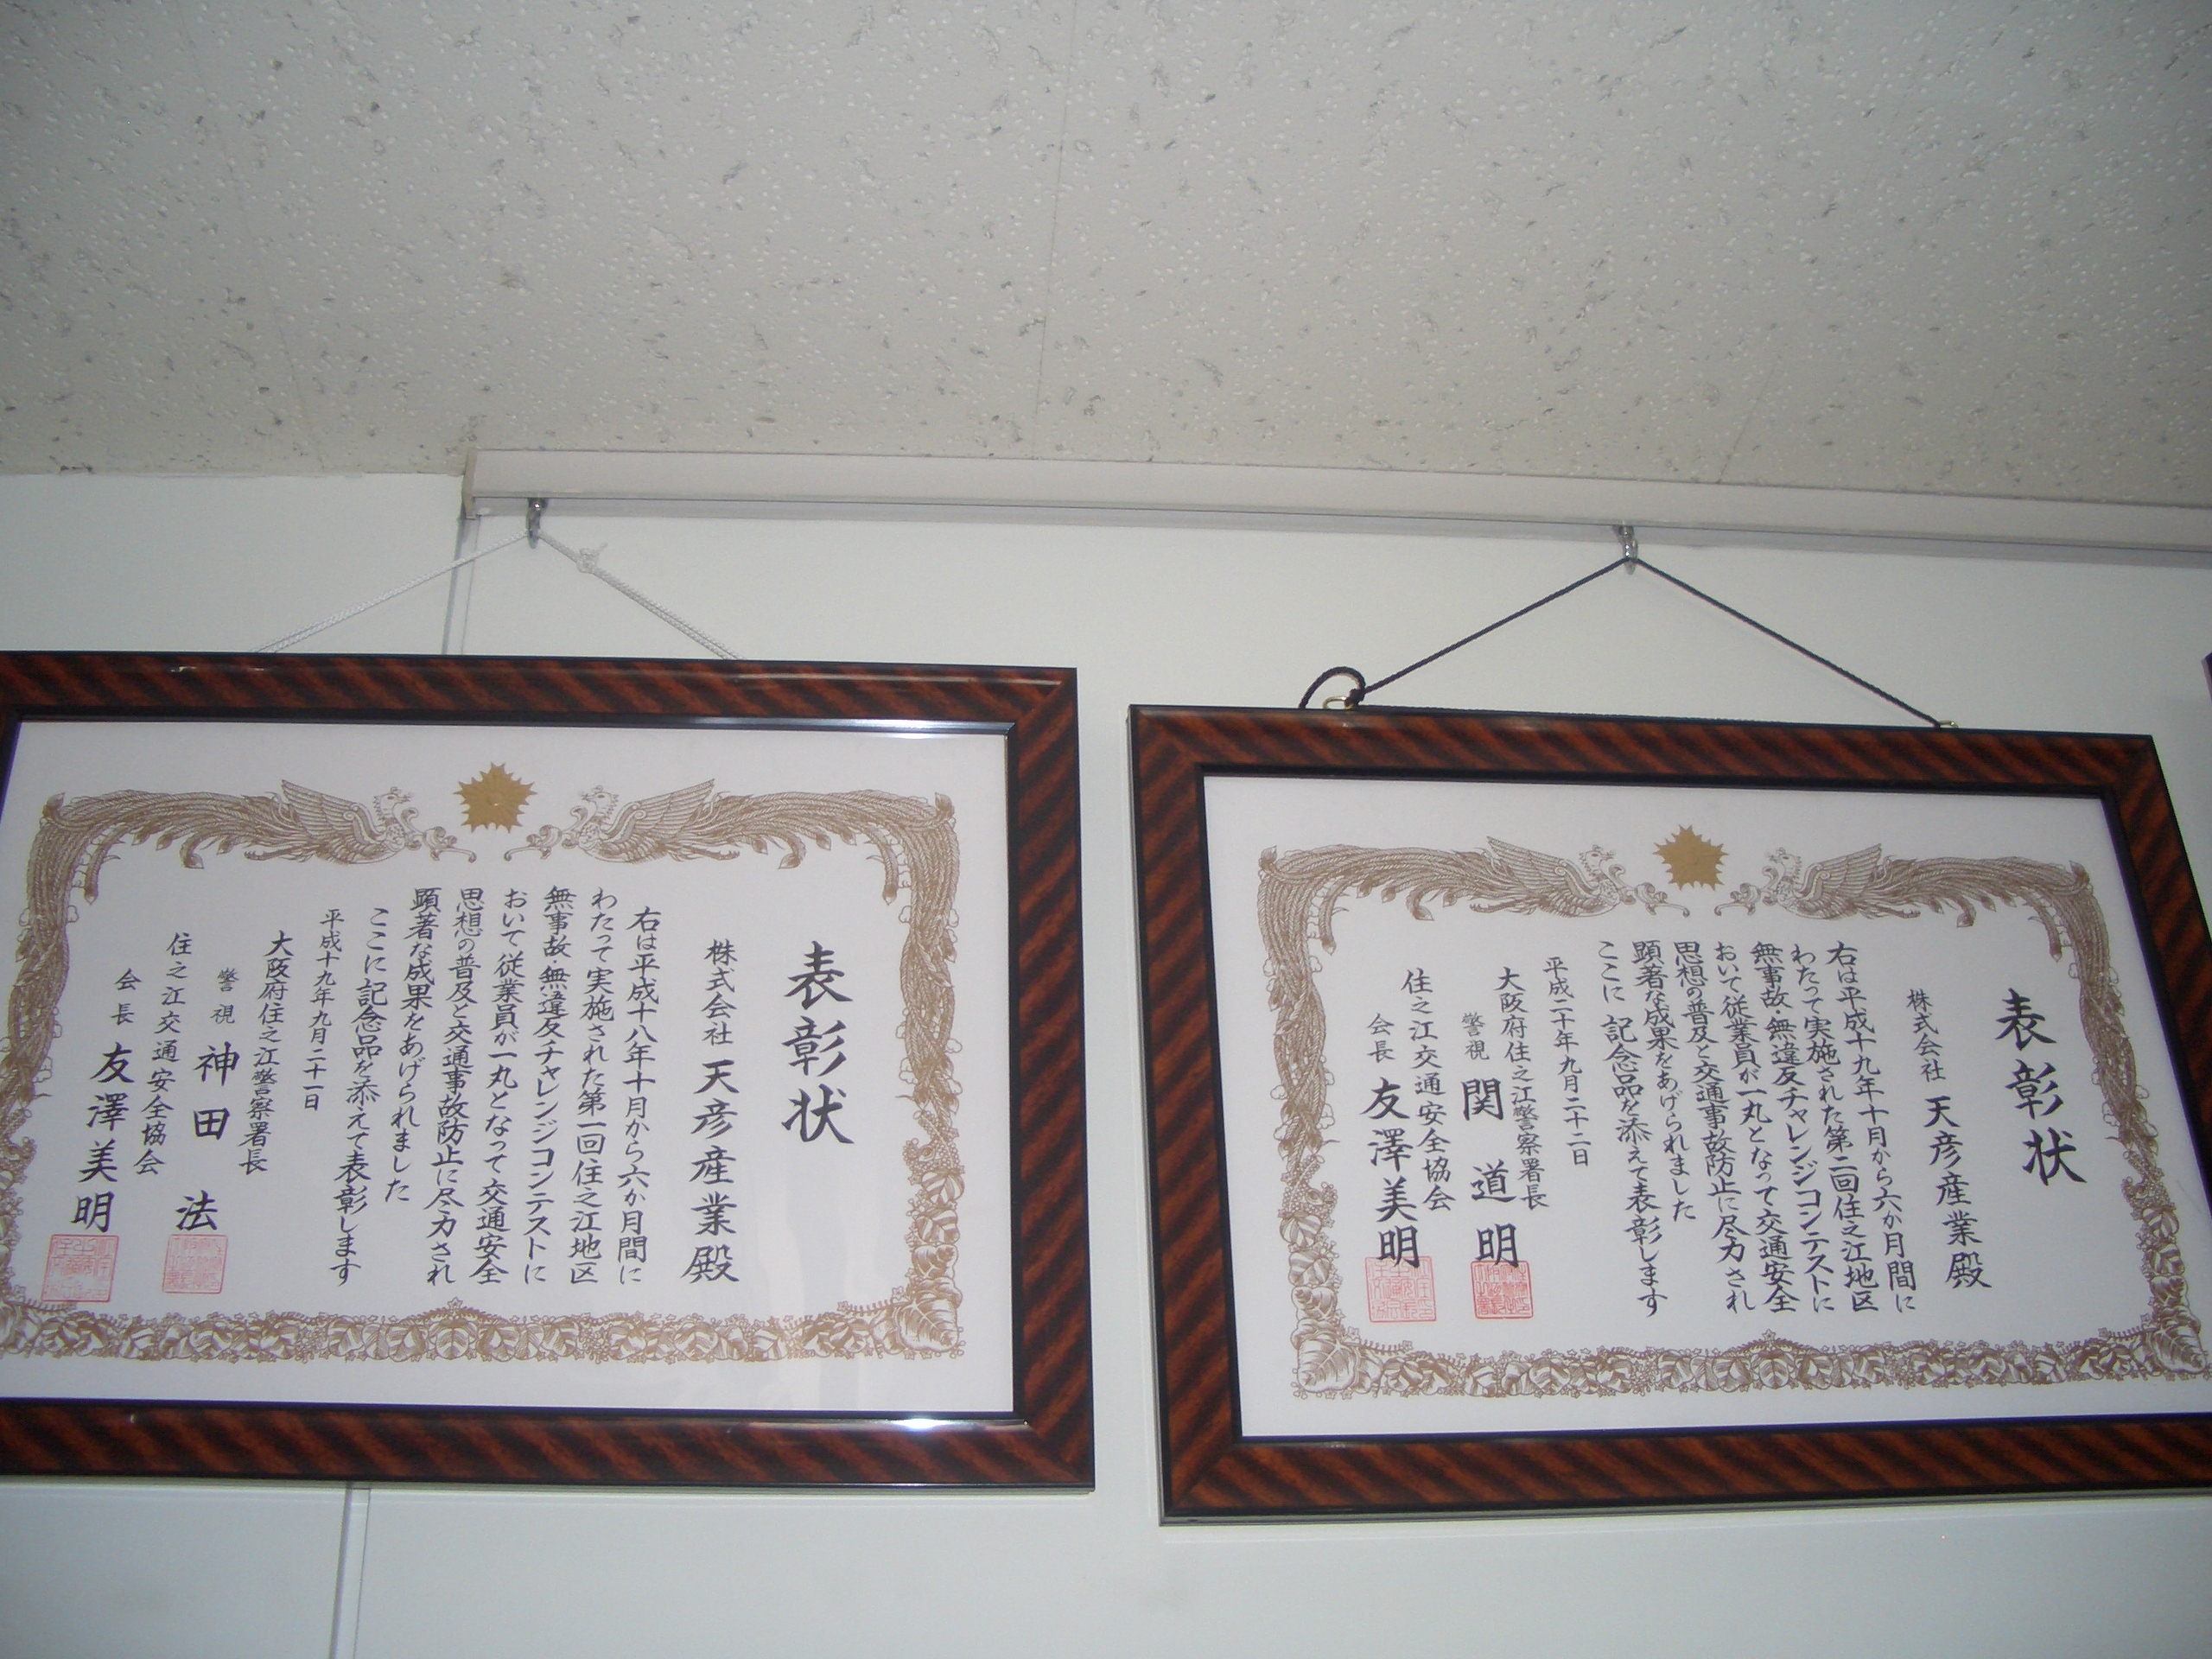 表彰状
株式会社 天彦産業殿
右は平成十八年十月から六か月間に
わたって実施された第一回住之江地区
無事故・無違反チャレンジコンテストに
おいて従業員が一丸となって交通安全
思想の普及と交通事故防止に尽力され
顕著な成果をあげられました
ここに記念品を添えて表彰します
平成十九年九月二十一日
大阪府住之江警察署長
警視 神田 法
住之江交通安全協会
会長 友澤美明
表彰状
株式会社 天彦産業殿
右は平成十九年十月から六か月間に
わたって実施された第二回住之江地区
無事故・無違反チャレンジコンテストに
おいて従業員が一丸となって交通安全
思想の普及と交通事故防止に尽力され
顕著な成果をあげられました
ここに記念品を添えて表彰します
平成二十年九月二十二日
大阪府住之江警察署長
警視 関 道明
住之江交通安全協会
会長 友澤美明